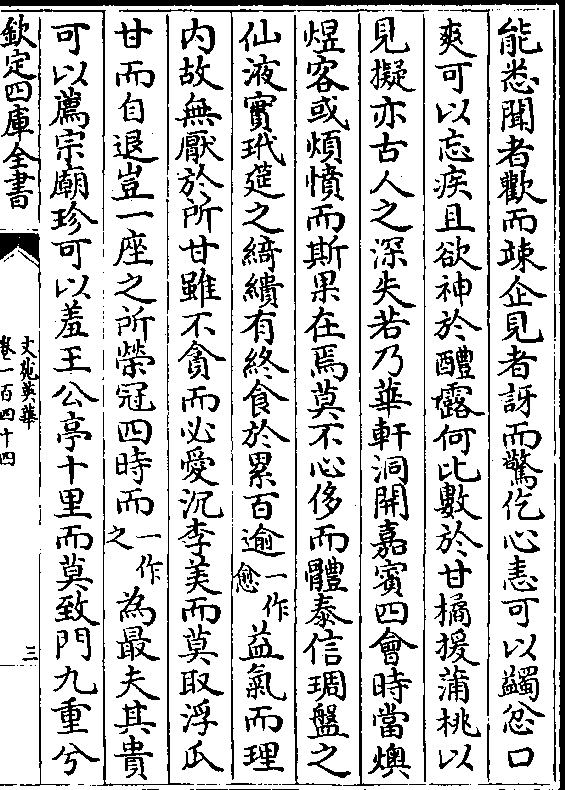 能悉聞者歡而竦企見者訝而驚仡心恚可以蠲忿口
爽可以忘疾且欲神於醴露何比數於甘橘援蒲桃以
見擬亦古人之深失若乃華軒洞開嘉賓四會時當燠
煜客或煩憒而斯果在焉莫不心侈而體泰信琱盤之
仙液實玳筵之綺繢有終食於累百逾一作愈益氣而理
内故無厭於所甘雖不貪而必愛沉李美而莫取浮瓜
甘而自退豈一座之所榮冠四時而一作之為最夫其貴
可以薦宗廟珍可以羞王公亭十里而莫致門九重兮
欽定四庫全書
文苑英華
卷一百四十四
三